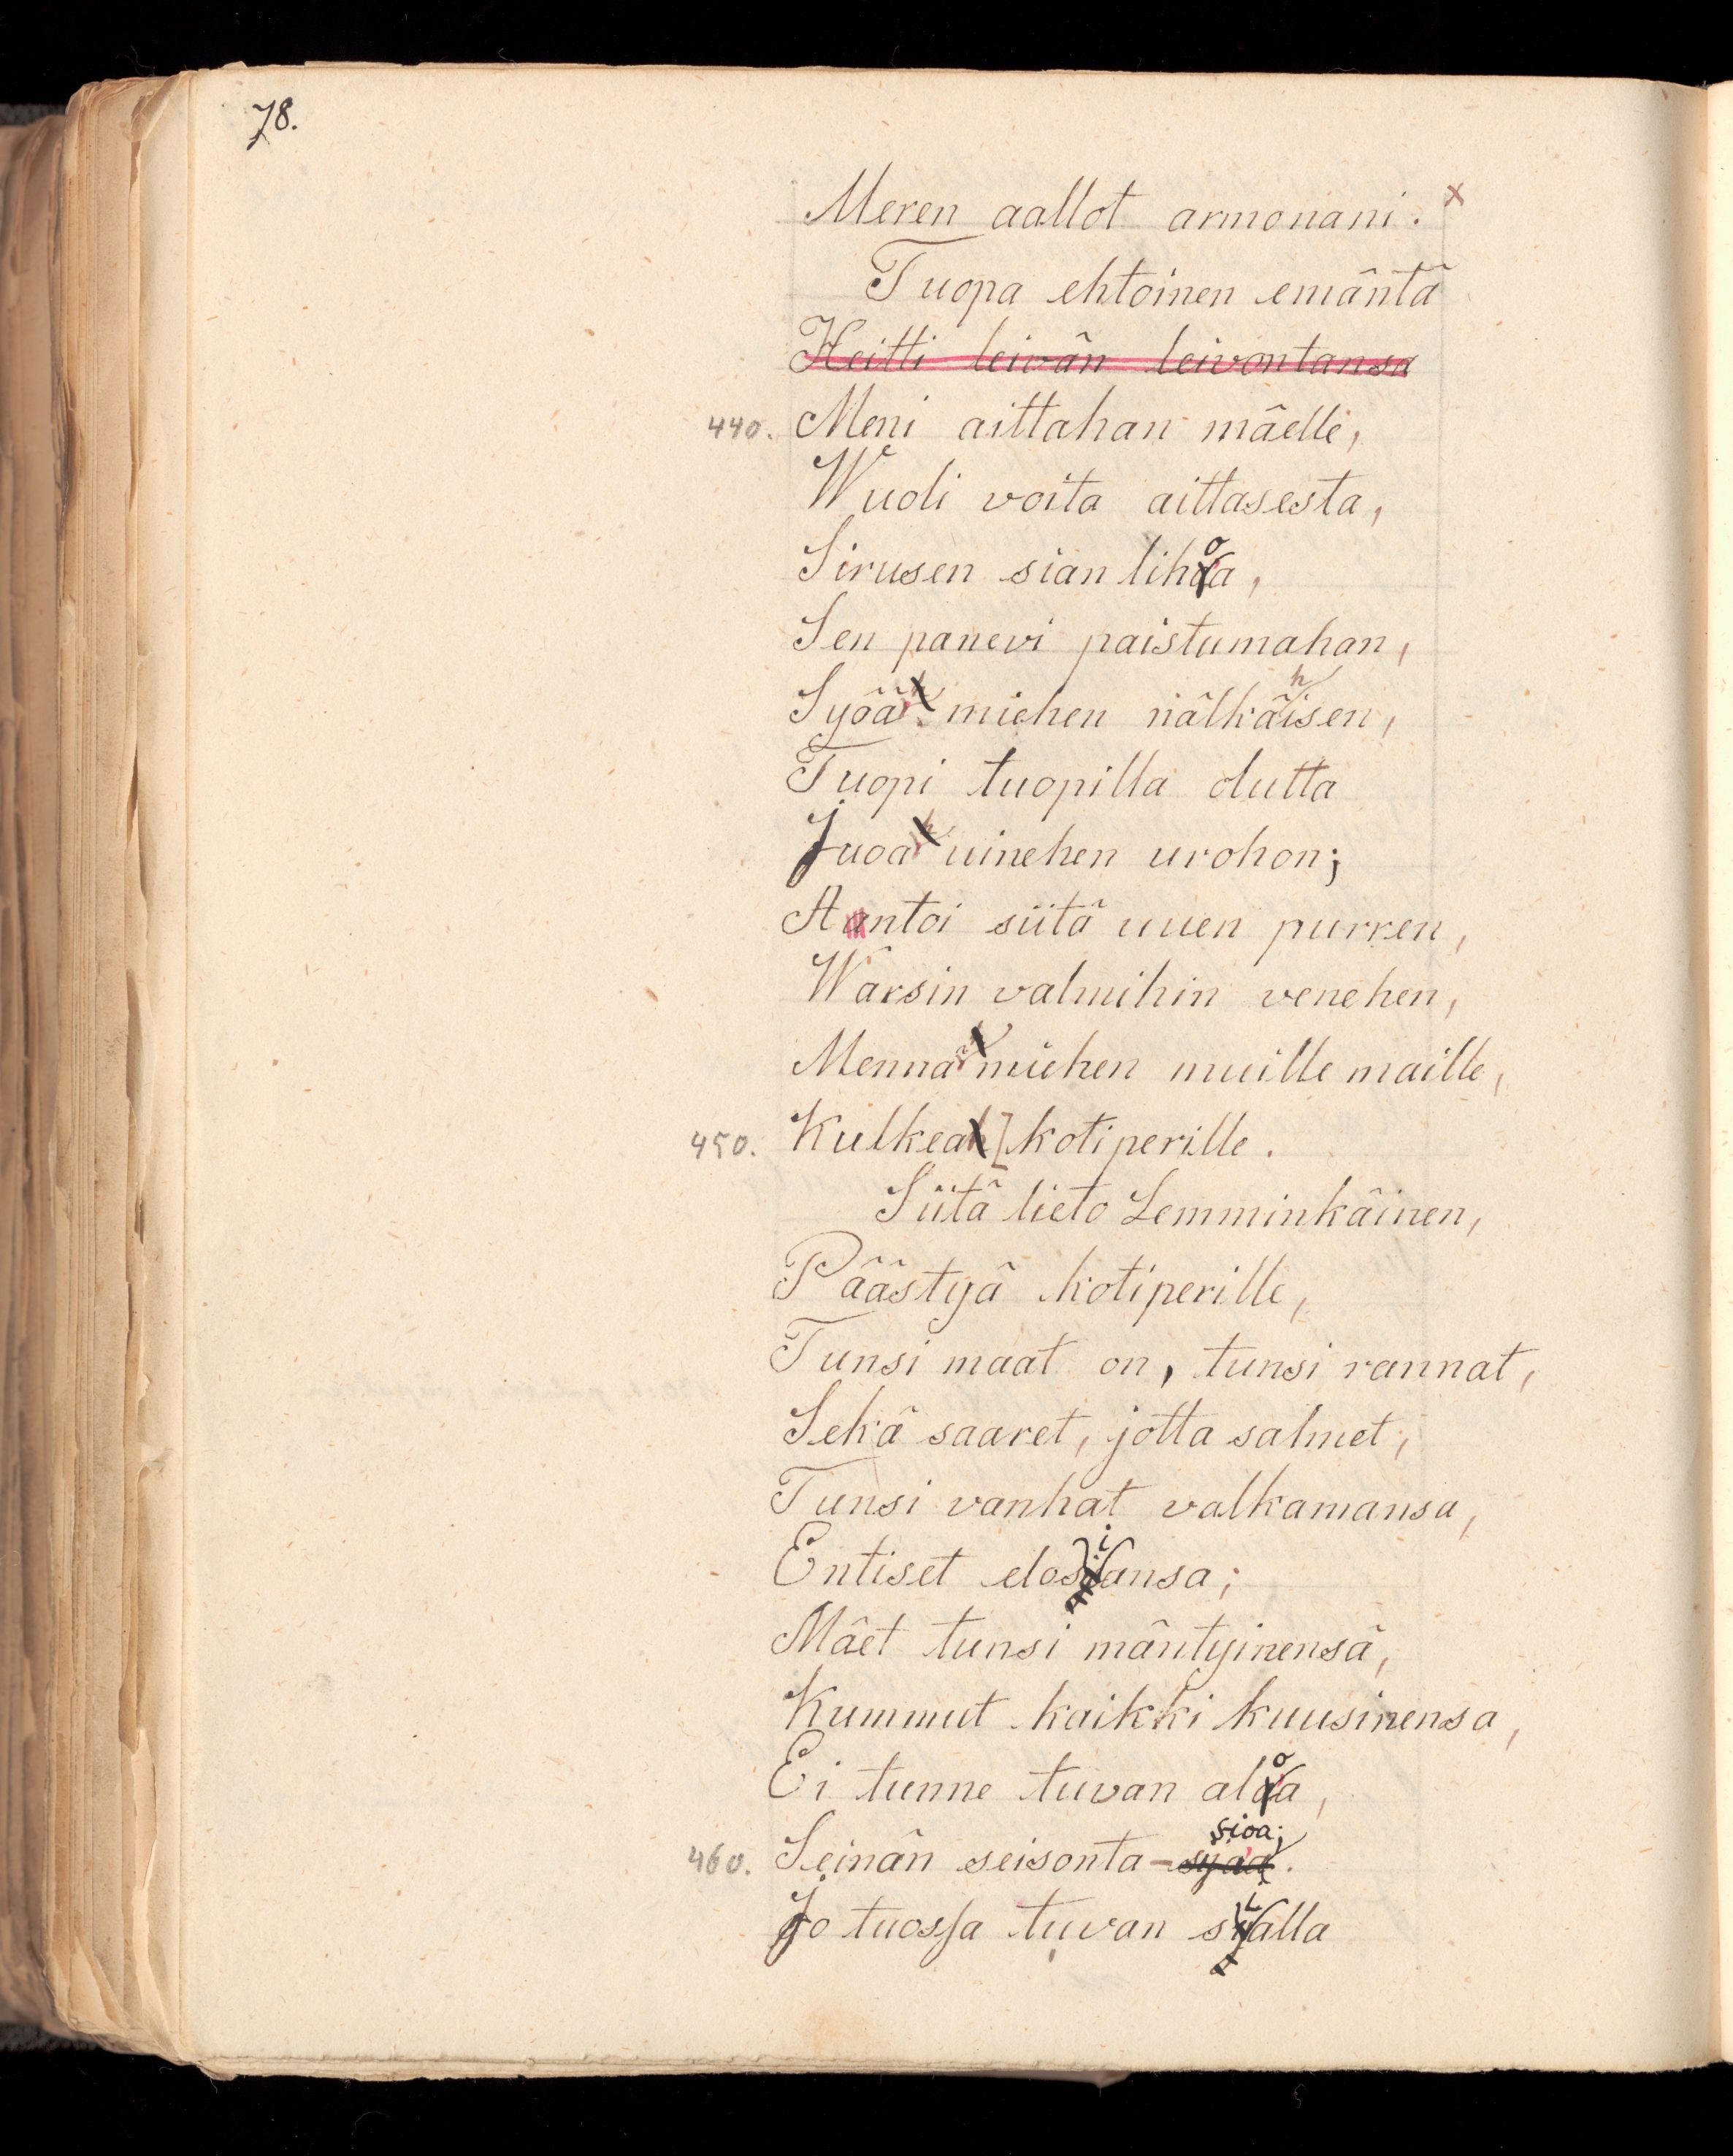 78.
Meren aallot armonani. x
Tuopa ehtoinen emäntä
Heitti leivän leivontansa
440. Meni aittahan mäelle,
Wuoli voita aittasesta,
Sirusen sian lihoa,
Sen panevi paistumahan,
h
Syöä miehen nälkäisen,
Tuopi tuopilla olutta
Juoa uinehen urohon;
Antoi siitä uuen purren,
Warsin valmihin venehen,
Mennä miehen muille maille,
450. Kulkea kotiperille.
Siitä lieto Lemminkäinen,
Päästyä kotiperille,
Tunsi maat on, tunsi rannat,
Sekä saaret, jotta salmet,
Tunsi vanhat valkamansa,
Entiset elosiansa;
Mäet tunsi mäntyinensä,
Kummut kaikki kuusinensa,
Ei tunne tuvan aloa,
sioa;
460. Seinän seisonta-syaa.
Jo tuossa tuvan sialla